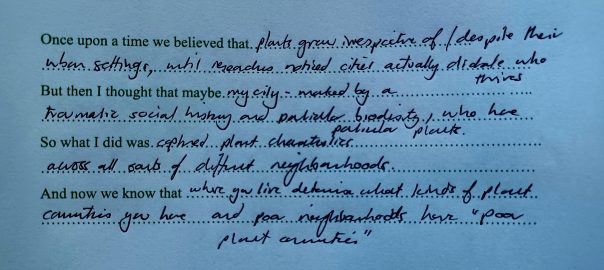 Once upon a time we believed that plants grew irrespective of / despite their
urban settings, until researchers noticed cities actually dictate who
thrives
But then I thought that maybe my city - marked by a
traumatic social history and particular biodiversity, who have
particular plants.
So what I did was captured plant characteristics
across all sorts of different neighbourhoods.
And now we know that where you live determines what kinds of plant
communities you have and poor neighbourhoods have "poor
plant communities"